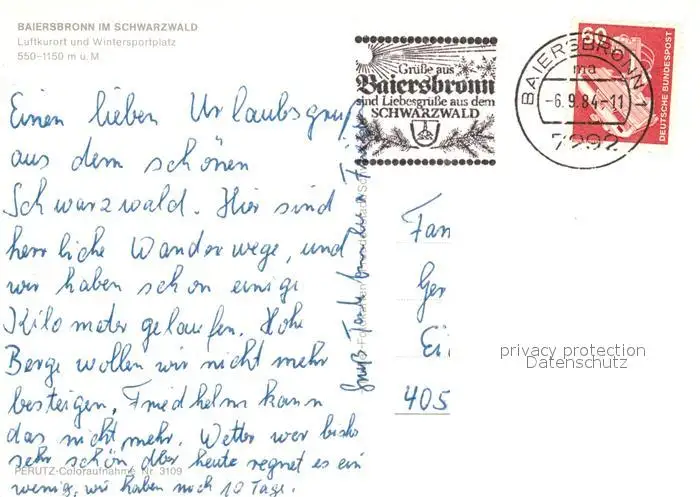 BAIERSBRONN IM SCHWARZWALD
Luftkurort und Wintersportplatz
550–1150 m ü. M
Einen lieben Urlaubsgruß
aus dem schönen
Schwarzwald. Hier sind
herrliche Wanderwege, und
wir haben schon einige
Kilometer gelaufen. Hohe
Berge wollen wir nicht mehr
besteigen, Friedhelm kann
das nicht mehr. Wetter war bisher
sehr schön, aber heute regnet es ein
wenig, wir haben noch 10 Tage.
PERUTZ-Coloraufnahme Nr. 3109
Gruß Tante
Grüße aus
Baiersbronn
sind Liebesgrüße aus dem
SCHWARZWALD
BAIERSBRONN 1
ma
-6.9.84-11
7292
60
DEUTSCHE BUNDESPOST
Fam
Ger
Ei
405
privacy protection
Datenschutz